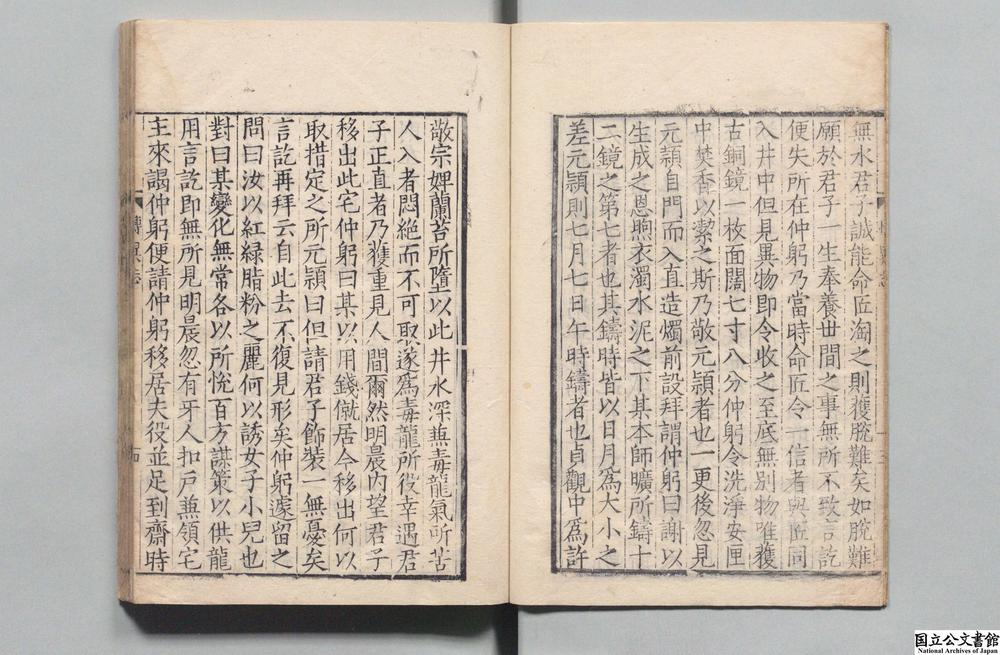 無水君子誠能命匠淘之則獲脫難矣如脫難
願於君子一生奉養世間之事無所不致言訖
便失所在仲躬乃當時命匠令一信者與匠同
入井中但見異物即令收之至底無別物唯獲
古銅鏡一枚面闊七寸八分仲躬令洗淨安匣
中焚香以潔之斯乃敬元穎者也一更後忽見
元穎自門而入直造燭前設拜謂仲躬曰謝以
生成之恩煦衣濁水泥之下某本師曠所鑄十
二鏡之第七者也其鑄時皆以日月爲大小之
差元穎則七月七日午時鑄者也貞觀中爲許
敬宗婢蘭苔所墮以此井水深兼毒龍氣所苦
人入者悶絕而不可取遂爲毒龍所役幸遇君
子正直者乃獲重見人間爾然明晨內望君子
移出此宅仲躬曰某以用錢僦居今移出何以
取措定之所元穎曰但請君子飾裝一無憂矣
言訖再拜云自此去不復見形矣仲躬遽留之
問曰汝以紅綠脂粉之麗何以誘女子小兒也
對曰某變化無常各以所悅百方謀策以供龍
用言訖即無所見明晨忽有牙人扣戶兼領宅
主來謁仲躬便請仲躬移居夫役並足到齋時
博異志
國立公文書館
National Archives of Japan